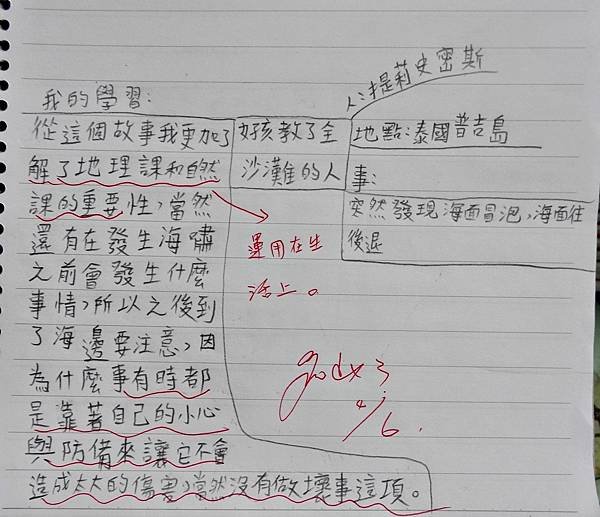 人:提莉史密斯
我的學習:
從這個故事我更加了
解了地理課和自然
課的重要性,當然
還有在發生海嘯
之前會發生什麼
事情,所以之後到
了海邊要注意,因
為什麼事有時都
是靠著自己的小心
與防備來讓它不會
造成太大的傷害,當然沒有做壞事這項。
好孩教了全
沙灘的人
地點:泰國普吉島
事:
突然發現海面冒泡,海面往
後退
運用在生
活上。
4/6